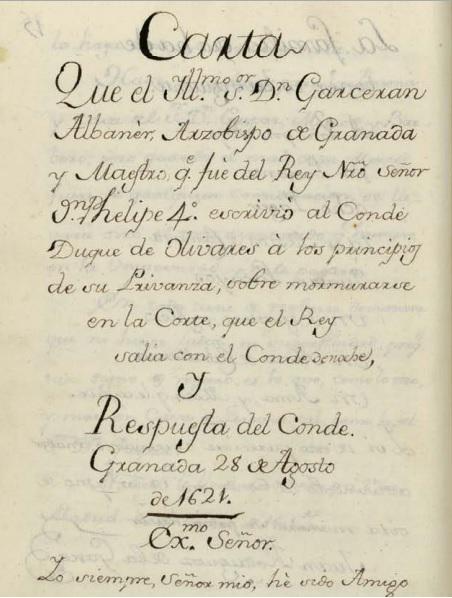 Carta
Que el Yll.mo S.or D.n Garceran
Albanèr, Arzobispo de Granada
y Maestro, q.e fuè del Rey Nrõ Señor
D.n Phelipe 4.o escriviò al Conde
Duque de Olivares à los principios
de su Privanza, sobre mormurarse
en la Corte, que el Rey
salia con el Conde de noche,
y
Respuesta del Conde.
Granada 28 de Agosto
de 1621.
Ex.mo Señor.
Yo siempre, Señor mio, hè sido Amigo